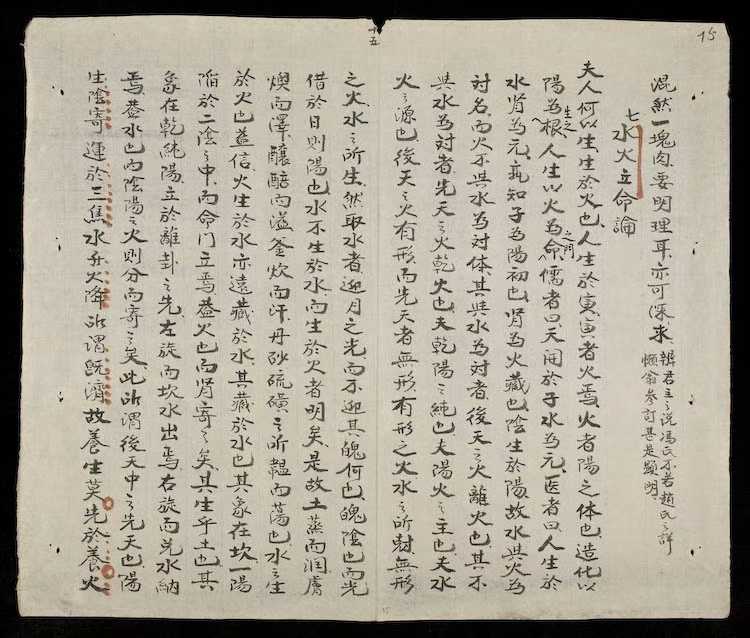 15
混然一塊肉要明理耳亦可深求 辨君主之說馮氏不若趙氏之詳
懶翁參訂甚是顯明
七
水火立命論
夫人何以生生於火也人生於寅寅者火焉火者陽之体也造化以
陽為生之根人生以火為命之門儒者曰天開於子水為元医者曰人生於
水肾為元孰知子為陽初也肾為火藏也陰生於陽故水與火為
対名而火不與水為対体其與水為対者後天之火離火也其不
與水為対者先天之火乾火也夫乾陽之純也夫陽火之主也夫水
火之源也後天之火有形而先天者無形有形之火水之所尅無形
之火水之所生然取水者迎月之光而不迎其魄何也魄陰也而光
借於日則陽也水不生於水而生於火者明矣是故土蒸而潤膚
燠而澤釀醅而溢釜炊而汗丹砂硫磺之所韞而蕩也水之生
於火也益信火生於水亦遠藏於水其藏於水也其象在坎一陽
陷於二陰之中而命門立焉蓋火也而肾寄之矣其生乎土也其
象在乾純陽立於離卦之先左旋而坎水出焉右旋而兌水納
焉蓋水也而陰陽之火則分而寄之矣此所謂後天中之先天也陽
生陰寄運於三焦水升火降所謂既濟故養生莫先於養火
十五